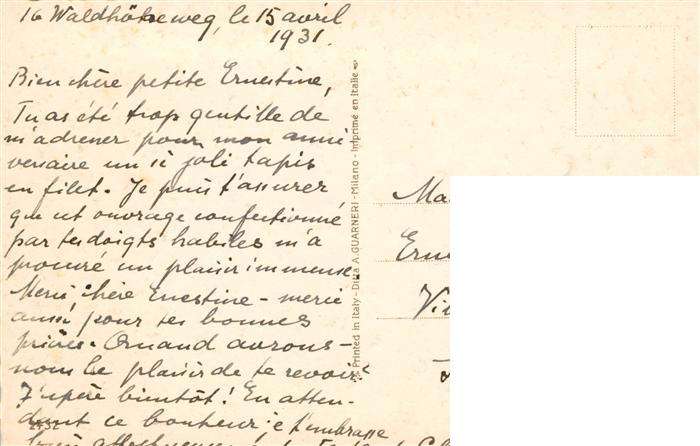 16 Waldhöheweg, le 15 avril
1931.
Bien chère petite Ernestine,
Tu as été trop gentille de
m'adresser pour mon anni
versaire un si joli tapis
en filet. Je puis t'assurer
que cet ouvrage confectionné
par tes doigts habiles m'a
procuré un plaisir immense.
Merci chère Ernestine - merci
aussi pour tes bonnes
prières. Quand aurons-
nous le plaisir de te revoir?
J'espère bientôt! En atten-
dant ce bonheur je t'embrasse
bien
Printed in Italy - Ditta A. GUARNERI - Milano - Imprimé en Italie
Ma
Erne
Vi